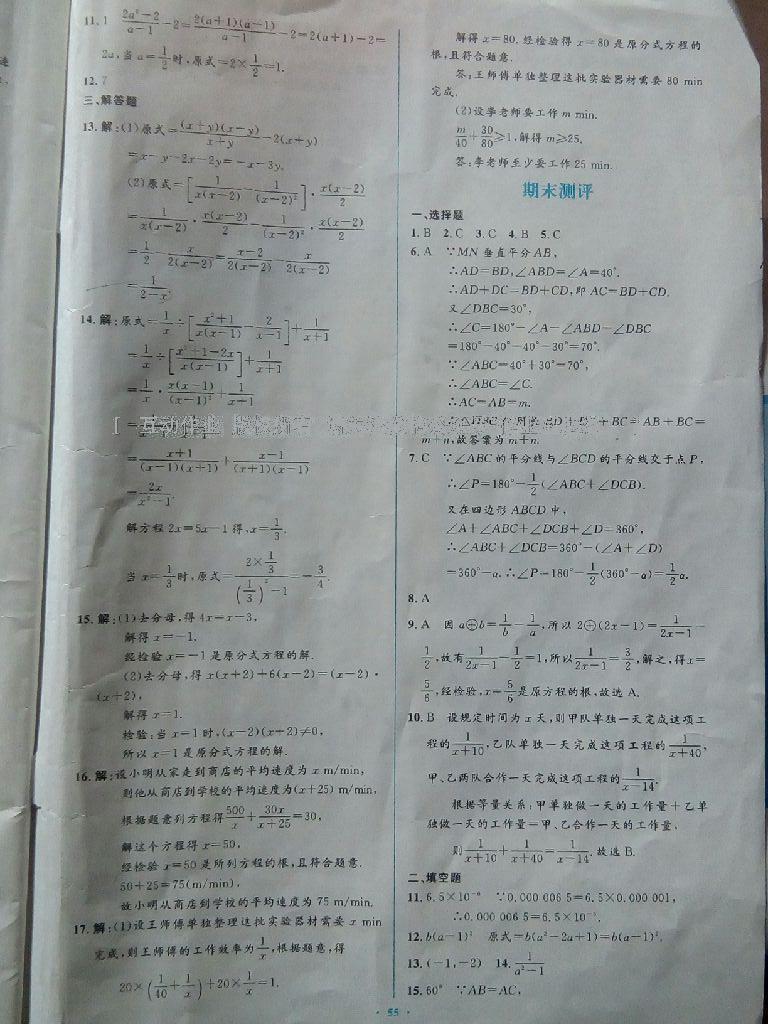 11. 1 $\frac{2a^2-2}{a-1}-2=\frac{2(a+1)(a-1)}{a-1}-2=2(a+1)-2=$
2a,当 $a=\frac{1}{2}$ 时,原式 $=2\times\frac{1}{2}=1.$
12. 7
三、解答题
13. 解:(1)原式 $=\frac{(x+y)(x-y)}{x+y}-2(x+y)$
$=x-y-2x-2y=-x-3y.$
(2)原式 $=\left[\frac{1}{x(x-2)}-\frac{1}{(x-2)^2}\right]\cdot\frac{x(x-2)}{2}$
$=\frac{1}{x(x-2)}\cdot\frac{x(x-2)}{2}-\frac{1}{(x-2)^2}\cdot\frac{x(x-2)}{2}$
$=\frac{1}{2}-\frac{x}{2(x-2)}=\frac{x-2}{2(x-2)}-\frac{x}{2(x-2)}$
$=\frac{1}{2-x}.$
14. 解:原式 $=\frac{1}{x}\div\left[\frac{x^2+1}{x(x-1)}-\frac{2}{x-1}\right]+\frac{1}{x+1}$
$=\frac{1}{x}\div\left[\frac{x^2+1-2x}{x(x-1)}\right]+\frac{1}{x+1}$
$=\frac{1}{x}\cdot\frac{x(x-1)}{(x-1)^2}+\frac{1}{x+1}$
$=\frac{x+1}{(x-1)(x+1)}+\frac{x-1}{(x+1)(x-1)}$
$=\frac{2x}{x^2-1}.$
解方程 2x=5x-1 得,$x=\frac{1}{3}.$
当 $x=\frac{1}{3}$ 时,原式 $=\frac{2\times\frac{1}{3}}{\left(\frac{1}{3}\right)^2-1}=-\frac{3}{4}.$
15. 解:(1)去分母,得 4x=x-3,
解得 x=-1.
经检验 x=-1 是原分式方程的解.
(2)去分母,得 x(x+2)+6(x-2)=(x-2)·
(x+2),
解得 x=1.
检验:当 x=1 时,(x-2)(x+2)≠0,
所以 x=1 是原分式方程的解.
16. 解:设小明从家走到商店的平均速度为 x m/min,
则他从商店到学校的平均速度为(x+25) m/min,
根据题意列方程得 $\frac{500}{x}+\frac{30x}{x+25}=30,$
解这个方程得 x=50,
经检验 x=50 是所列方程的根,且符合题意.
50+25=75(m/min),
故小明从商店到学校的平均速度为 75 m/min.
17. 解:(1)设王师傅单独整理这批实验器材需要 x min
完成,则王师傅的工作效率为 $\frac{1}{x}$,根据题意,得
$20\times\left(\frac{1}{40}+\frac{1}{x}\right)+20\times\frac{1}{x}=1.$
解得 x=80. 经检验得 x=80 是原分式方程的
根,且符合题意.
答:王师傅单独整理这批实验器材需要 80 min
完成.
(2)设李老师要工作 m min.
$\frac{m}{40}+\frac{30}{80}\geqslant1$,解得 m≥25,
答:李老师至少要工作 25 min.
期末测评
一、选择题
1. B 2. C 3. C 4. B 5. C
6. A ∵MN 垂直平分 AB,
∴AD=BD,∠ABD=∠A=40°.
∴AD+DC=BD+CD,即 AC=BD+CD.
又∠DBC=30°,
∴∠C=180°-∠A-∠ABD-∠DBC
=180°-40°-40°-30°=70°.
∵∠ABC=40°+30°=70°,
∴∠ABC=∠C.
∴AC=AB=m.
BD+ BC=AB+BC=
m+n,故答案为 m+n.
7. C ∵∠ABC 的平分线与∠BCD 的平分线交于点 P,
∴∠P=180°-$\frac{1}{2}$(∠ABC+∠DCB).
又在四边形 ABCD 中,
∠A+∠ABC+∠DCB+∠D=360°,
∴∠ABC+∠DCB=360°-(∠A+∠D)
=360°-α.∴∠P=180°-$\frac{1}{2}$(360°-α)=$\frac{1}{2}$α.
8. A
9. A 因 a⊕b=$\frac{1}{b}-\frac{1}{a}$,所以 2⊕(2x-1)=$\frac{1}{2x-1}-$
$\frac{1}{2}$,故有 $\frac{1}{2x-1}-\frac{1}{2}=1$,所以 $\frac{1}{2x-1}=\frac{3}{2}$,解之,得 x=
$\frac{5}{6}$,经检验,x=$\frac{5}{6}$ 是原方程的根,故选 A.
10. B 设规定时间为 x 天,则甲队单独一天完成这项工
程的 $\frac{1}{x+10}$,乙队单独一天完成这项工程的 $\frac{1}{x+40}$,
甲、乙两队合作一天完成这项工程的 $\frac{1}{x-14}$.
根据等量关系:甲单独做一天的工作量+乙单
独做一天的工作量=甲、乙合作一天的工作量,
则 $\frac{1}{x+10}+\frac{1}{x+40}=\frac{1}{x-14}$. 故选 B.
二、填空题
11. 6.5×10⁻⁶ ∵0.000 006 5=6.5×0.000 001,
∴0.000 006 5=6.5×10⁻⁶.
12. b(a-1)² 原式=b(a²-2a+1)=b(a-1)².
13. (-1,-2) 14. $\frac{1}{a^2-1}$
15. 60° ∵AB=AC,
· 55 ·